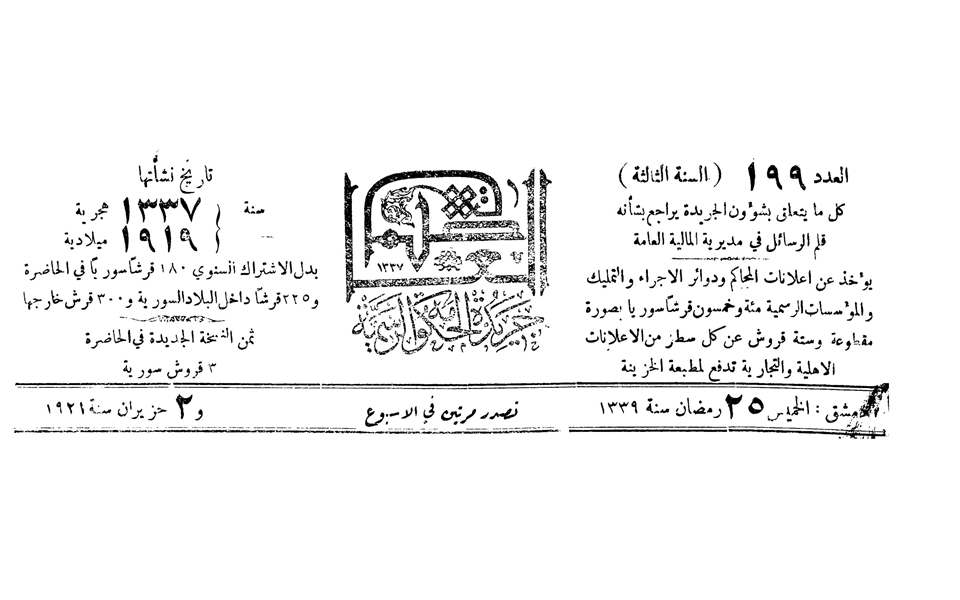 العدد ١٩٩ (السنة الثالثة)
كل ما يتعلق بشؤون الجريدة يراجع بشأنه
قلم الرسائل في مديرية المالية العامة
يؤخذ عن اعلانات المحاكم ودوائر الاجراء والتمليك
والمؤسسات الرسمية مئة وخمسون قرشا سوريا بصورة
مقطوعة وستة قروش عن كل سطر من الاعلانات
الاهلية والتجارية تدفع لمطبعة الخزينة
العاصمة
١٣٣٧
جريدة الحكومة الرسمية
تاريخ نشأتها
سنة ١٣٣٧ هجرية
١٩١٩ ميلادية
بدل الاشتراك السنوي ١٨٠ قرشا سوريا في الحاضرة
و٢٢٥ قرشا داخل البلاد السورية و٣٠٠ قرش خارجها
ثمن النسخة الجديدة في الحاضرة
٣ قروش سورية
دمشق: الخميس ٢٥ رمضان سنة ١٣٣٩
تصدر مرتين في الاسبوع
و ٢ حزيران سنة ١٩٢١